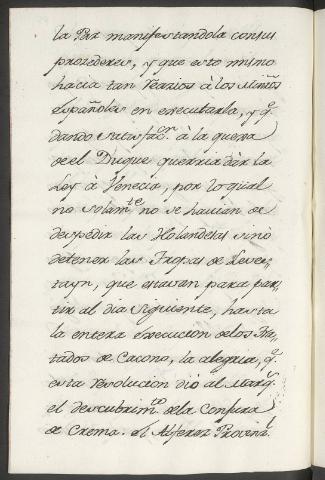 la Paz manifestandola con sus
prozederes, y que esto mismo
hacia tan reazios à los Minros
españoles en executarla, y q̃
dando satisfaccn. à la quexa
de el Duque querria dàr la
Ley à Venecia, por lo qüal
no solamte. no se hauian de
despedir las Holandesas sinò
detener las Tropas de Leves-
tayn, que estavan para par-
tir al dia siguiente, hasta
la entera execucion de los Tra-
tados de la alegria, q̃
esta revolucion diò al Marq̃s.
el descubrimto. de la Conjura
de Crema. el Alferez Provenzl.